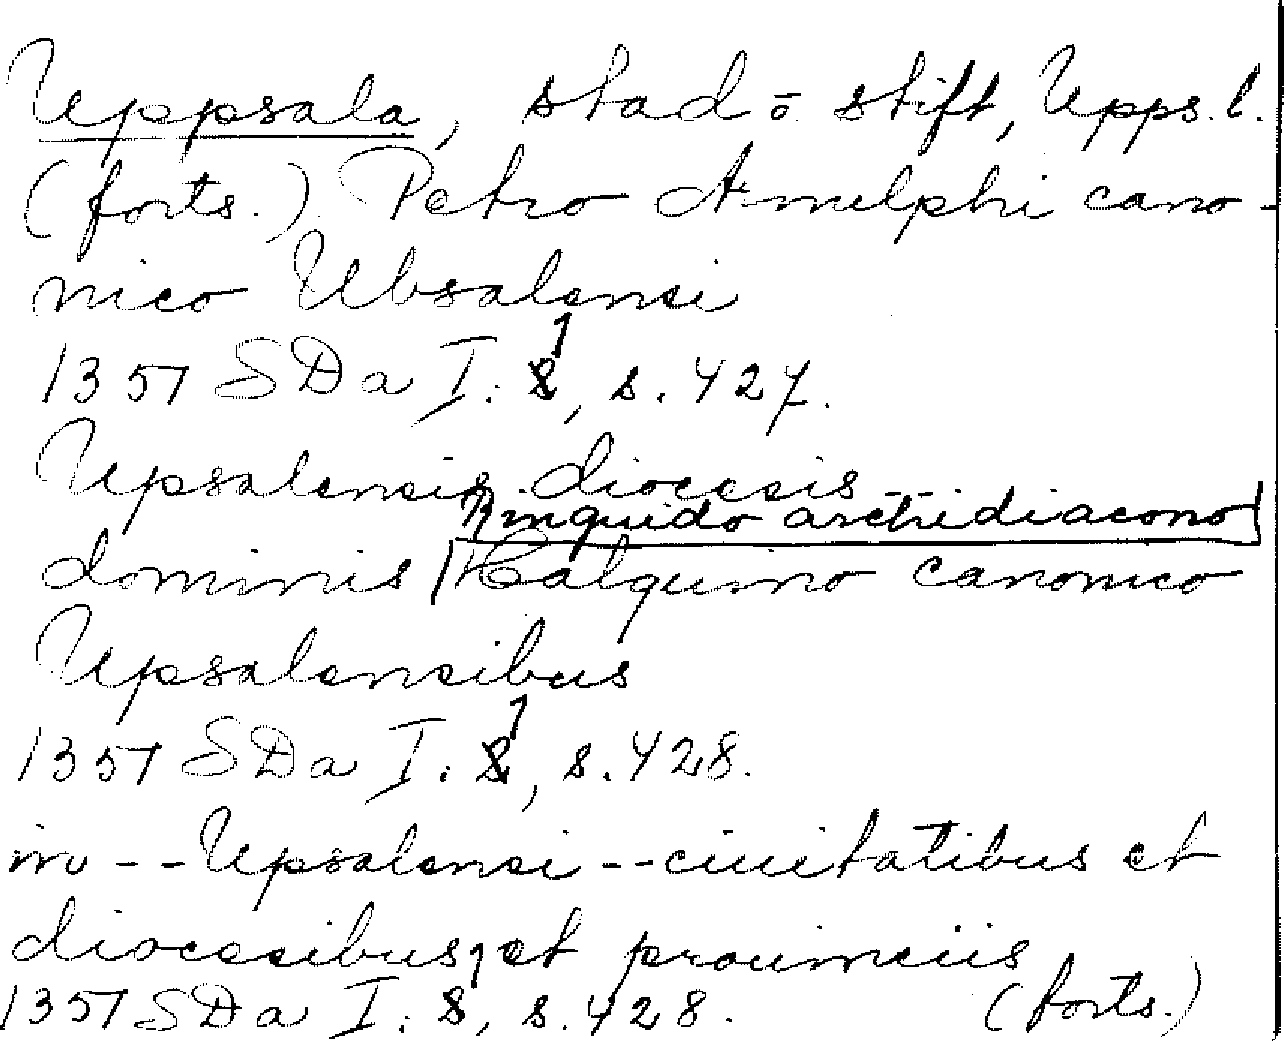 Uppsala, stad o. stift, Upps. l.
(forts.) Petro Amulphi cano-
nico Ubsalensi
1357 SDa I:1, s. 427.
Upsalensis diocesis --
Ringuido archidiacono
dominis Halquino canonico
Upsalensibus
1357 SDa I:1, s. 428.
in -- Upsalensi -- ciuitatibus et
diocesibus et prouinciis
1357 SDa I:1, s. 428. (forts.)